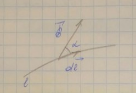 B⃗
α
dl⃗
l